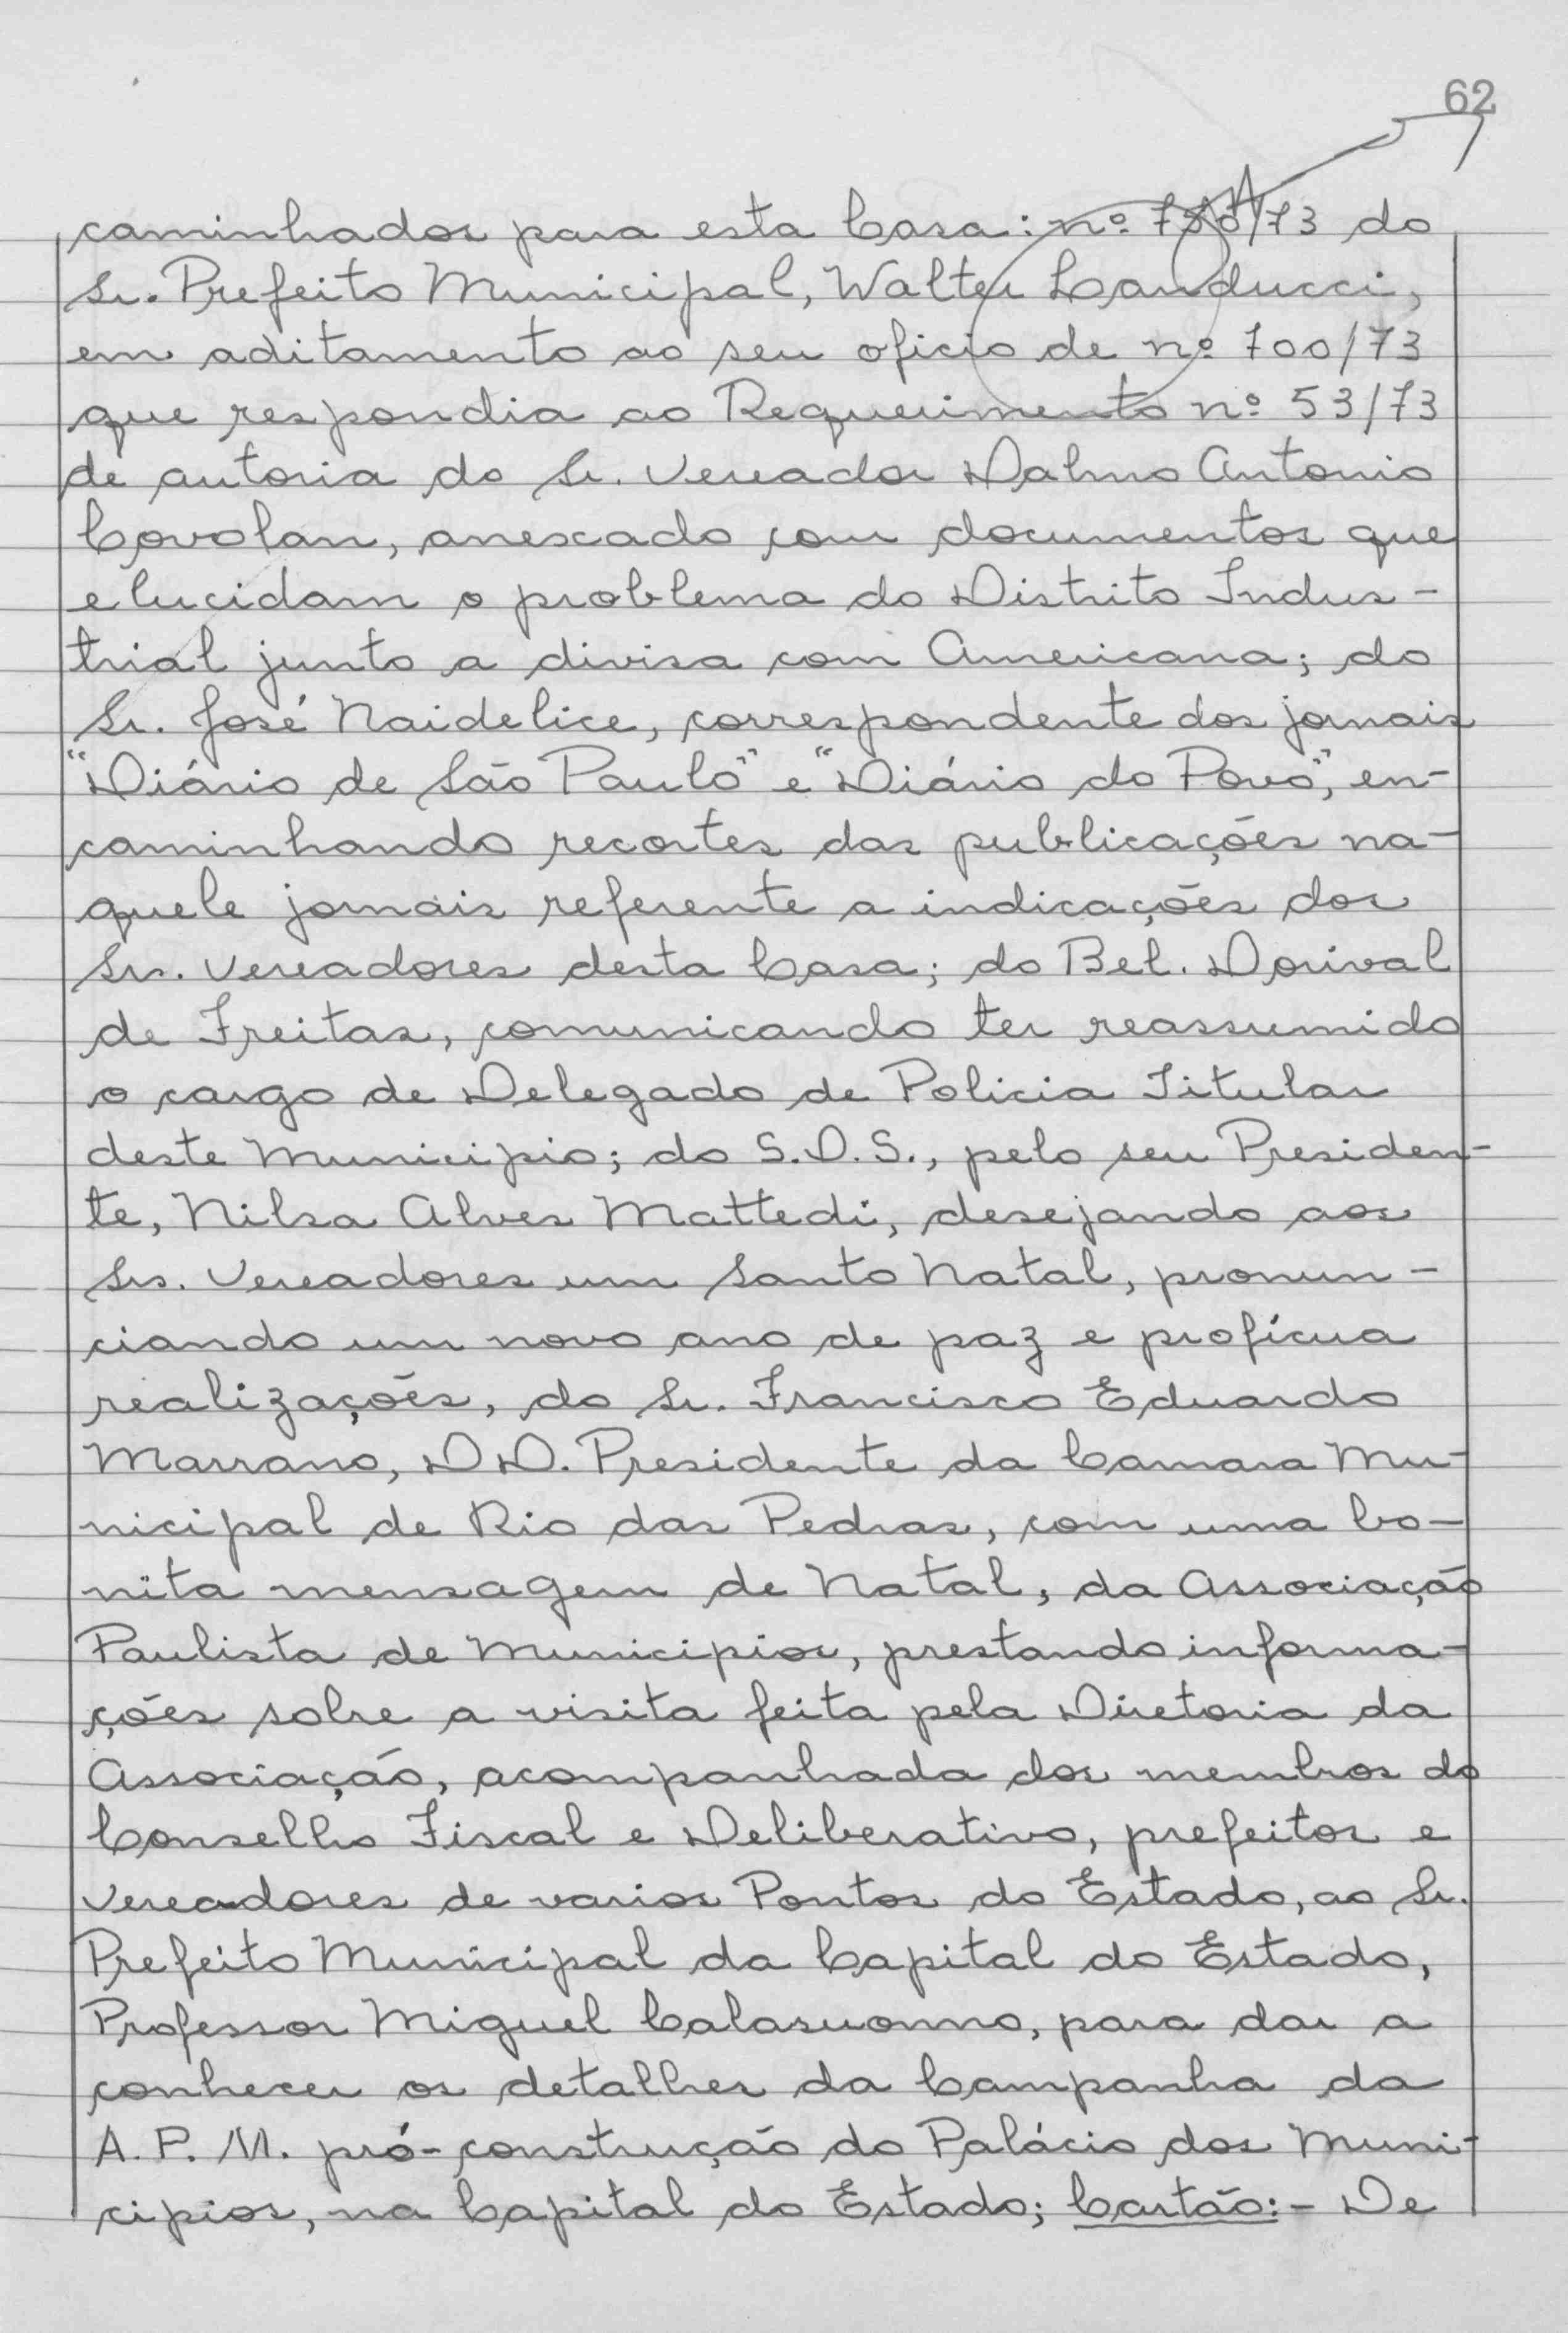 62
caminhados para esta Casa: nº /73 do
Sr. Prefeito Municipal, Walter Landucci,
em aditamento ao seu oficio de nº 700/73
que respondia ao Requerimento nº 53/73
de autoria do Sr. Vereador Dalmo Antonio
Covolan, anexado com documentos que
elucidam o problema do Distrito Indus-
trial junto a divisa com Americana; do
Sr. José Naidelice, correspondente dos jornais
"Diário de São Paulo" e "Diário do Povo", en-
caminhando recortes das publicações na-
quele jornais referente a indicações dos
Srs. Vereadores desta Casa; do Bel. Dorival
de Freitas, comunicando ter reassumido
o cargo de Delegado de Policia Titular
deste Municipio; do S.O.S., pelo seu Presiden-
te, Nilsa Alves Mattedi, desejando aos
Srs. Vereadores um Santo Natal, pronun-
ciando um novo ano de paz e profícua
realizações, do Sr. Francisco Eduardo
Marrano, DD. Presidente da Camara Mu-
nicipal de Rio das Pedras, com uma bo-
nita mensagem de Natal, da Associação
Paulista de Municipios, prestando informa-
ções sobre a visita feita pela Diretoria da
Associação, acompanhada dos membros do
Conselho Fiscal e Deliberativo, prefeitos e
Vereadores de varios Pontos do Estado, ao Sr.
Prefeito Municipal da Capital do Estado,
Professor Miguel Colasuonno, para dar a
conhecer os detalhes da Campanha da
A. P. M. pró-construção do Palácio dos Muni-
cipios, na Capital do Estado; Cartão:- De